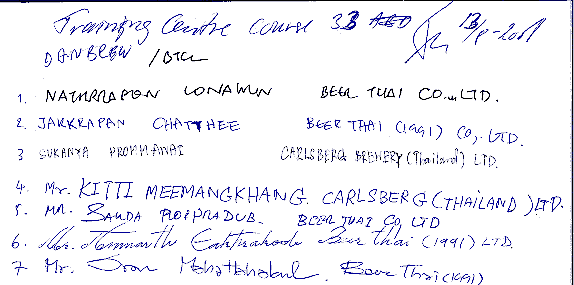 Training Centre Course 33
DANBREW / BTCL
1. NATHRRAPON LONAWUN BEER THAI CO., LTD.
2. JAKKRAPAN CHATTHEE BEER THAI (1991) CO., LTD.
3 SUKANYA PROMMANAI CARLSBERG BREWERY (Thailand) LTD.
4. Mr. KITTI MEEMANGKHANG. CARLSBERG (THAILAND) LTD.
5. MR. BEER THAI CO, LTD
6. Mr. Beer thai (1991) LTD.
7 Mr. Beer Thai (1991)